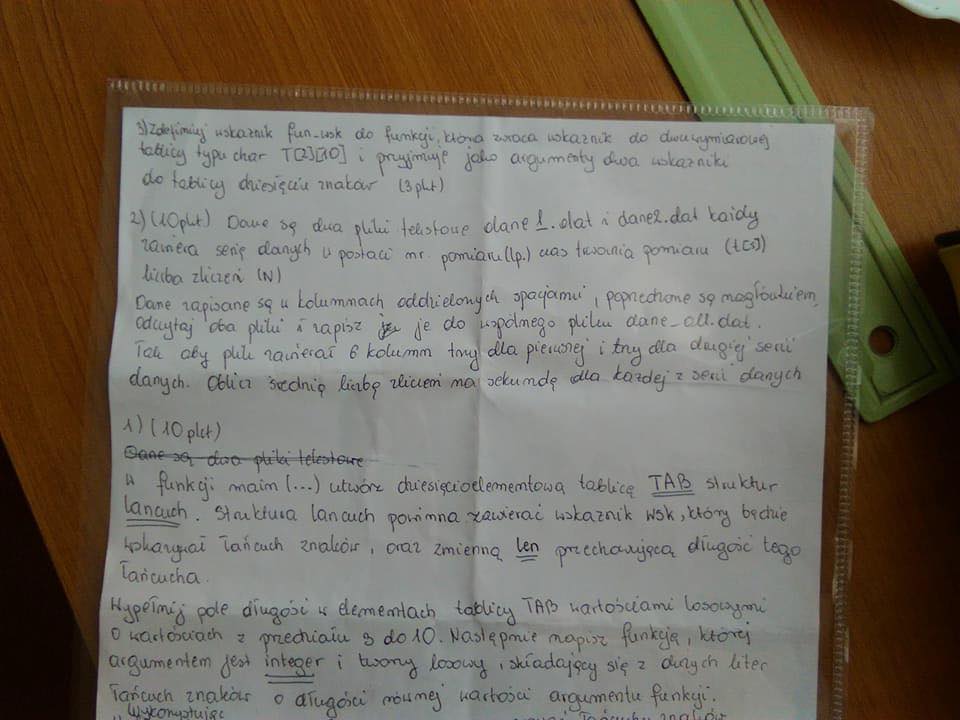 3) Zdefiniuj wskaźnik fun_wsk do funkcji, która zwraca wskaźnik do dwuwymiarowej
tablicy typu char T[2][10] i przyjmuje jako argumenty dwa wskaźniki
do tablicy dziesięciu znaków (3pkt)
2) (10pkt) Dane są dwa pliki tekstowe dane1.dat i dane2.dat każdy
zawiera serię danych w postaci nr. pomiaru (lp.) czas trwania pomiaru (t[s])
liczba zliczeń (N)
Dane zapisane są w kolumnach oddzielonych spacjami, poprzedzone są nagłówkiem,
odczytaj oba pliki i zapisz je do wspólnego pliku dane_all.dat.
Tak aby plik zawierał 6 kolumn trzy dla pierwszej i trzy dla drugiej serii
danych. Oblicz średnią liczbę zliczeń na sekundę dla każdej z serii danych
1) (10pkt)
Dane są dwa pliki tekstowe
W funkcji main (...) utwórz dziesięcioelementową tablicę TAB struktur
lancuch. Struktura lancuch powinna zawierać wskaźnik wsk, który będzie
wskazywał łańcuch znaków, oraz zmienną len przechowującą długość tego
łańcucha.
Wypełnij pole długości w elementach tablicy TAB wartościami losowymi
o wartościach z przedziału 3 do 10. Następnie napisz funkcję, której
argumentem jest integer i tworzy losowy, składający się z dużych liter
łańcuch znaków o długości równej wartości argumentu funkcji.
Wykorzystując
łańcuchy znaków